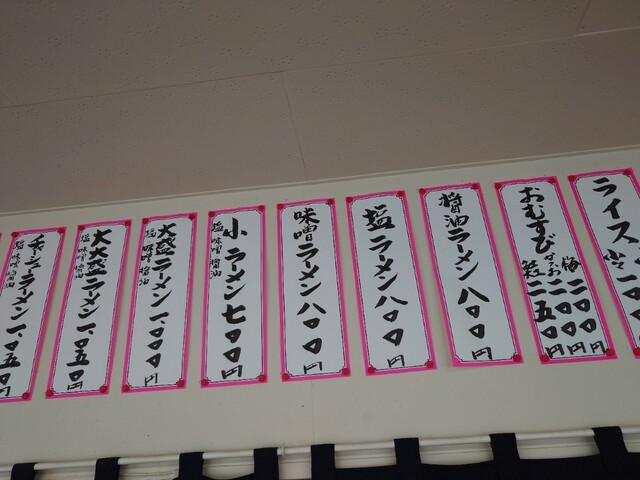 ライス
おむすび
梅 二〇〇円
おかか 二〇〇円
鮭 二五〇円
醤油ラーメン 八〇〇円
塩ラーメン 八〇〇円
味噌ラーメン 八〇〇円
小ラーメン 七〇〇円
塩 味噌 醤油
大盛ラーメン 一〇〇〇円
塩 味噌 醤油
大大盛ラーメン 一〇五〇円
塩 味噌 醤油
チャーシューラーメン 一〇五〇円
塩 味噌 醤油